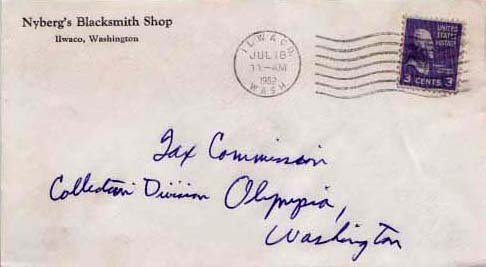 Nyberg's Blacksmith Shop
Ilwaco, Washington
ILWACO
JUL 18
11-AM
1952
WASH.
UNITED
STATES
POSTAGE
3 CENTS 3
Tax Commission
Collection Division Olympia,
Washington